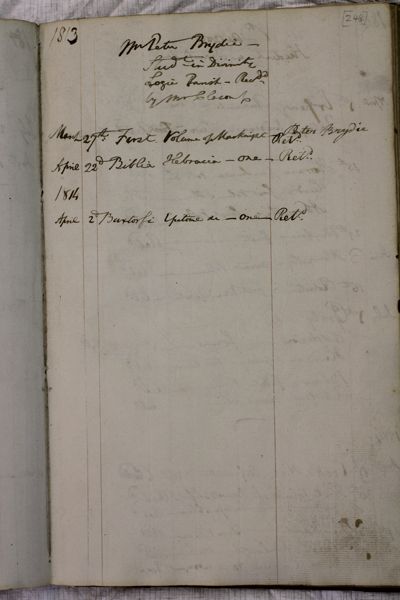 1813
[248]
Mr Peter Brydie —
Stud.t in Divinity
Logie Parish — Rec.d
by Mr
March 29th First Volume of Macknight — Peter Brydie
Ret.d
April 22d Biblia Hebraica — one — Ret.d
1814
April 2d Buxtorfi Epitome &c — one — Ret.d